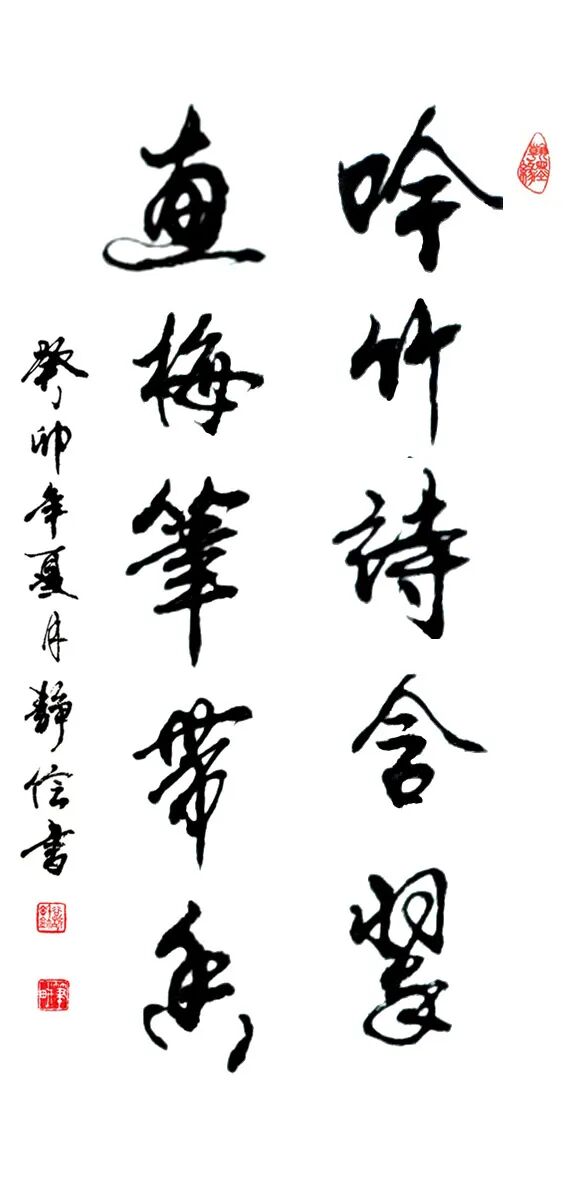 吟竹詩含翠
畫梅筆帶香
癸卯年夏月靜信書